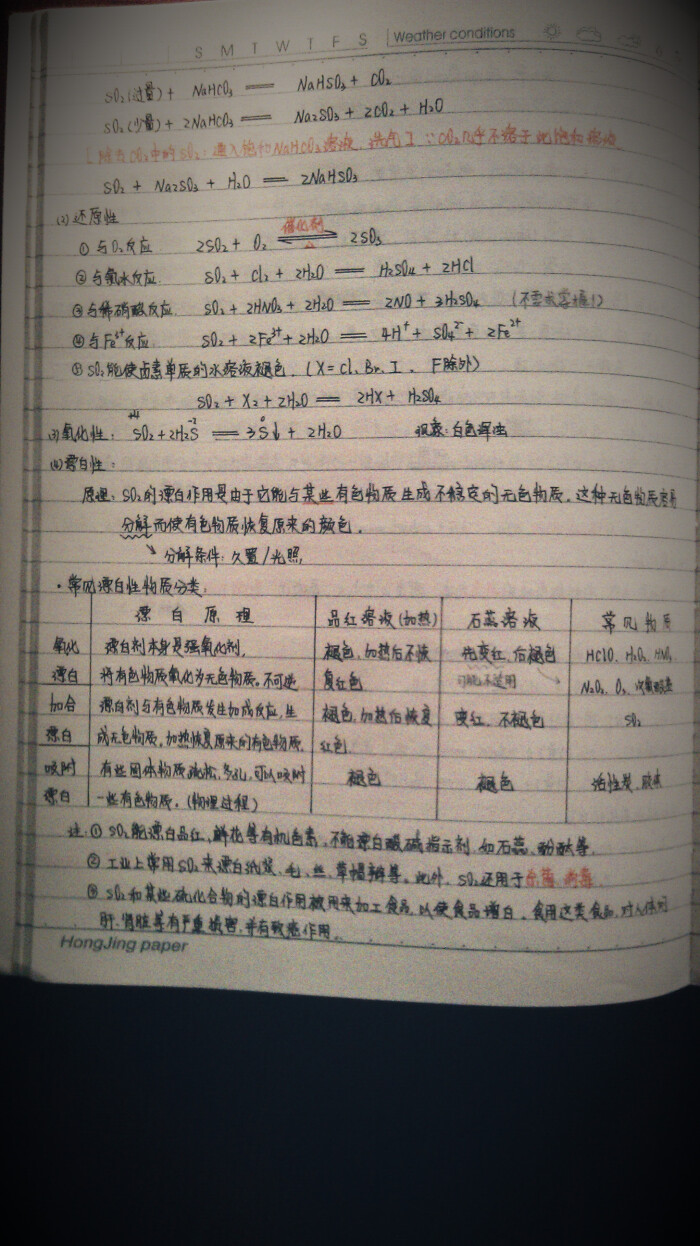 S M T W T F S Weather conditions
SO₂(过量) + NaHCO₃ == NaHSO₃ + CO₂
SO₂(少量) + 2NaHCO₃ == Na₂SO₃ + 2CO₂ + H₂O
除去CO₂中的SO₂:通入饱和NaHCO₃溶液,洗气 ∵CO₂几乎不溶于此饱和溶液
SO₂ + Na₂SO₃ + H₂O == 2NaHSO₃
(2)还原性
① 与O₂反应 2SO₂ + O₂ ⇌ 2SO₃ 催化剂 △
② 与氯水反应 SO₂ + Cl₂ + 2H₂O == H₂SO₄ + 2HCl
③ 与稀硝酸反应 SO₂ + 2HNO₃ + 2H₂O == 2NO + 3H₂SO₄
④ 与Fe³⁺反应 SO₂ + 2Fe³⁺ + 2H₂O == 4H⁺ + SO₄²⁻ + 2Fe²⁺
⑤ SO₂能使卤素单质的水溶液褪色.(X=Cl、Br、I. F除外)
SO₂ + X₂ + 2H₂O == 2HX + H₂SO₄
(3)氧化性: +4 -2 0 SO₂ + 2H₂S == 3S↓ + 2H₂O 现象:白色浑浊
(4)漂白性:
原理:SO₂的漂白作用是由于它能与某些有色物质生成不稳定的无色物质.这种无色物质容易
分解而使有色物质恢复原来的颜色.
↘ 分解条件:久置/光照
·常见漂白性物质分类:
漂白原理 品红溶液(加热) 石蕊溶液 常见物质
氧化 漂白剂本身是强氧化剂, 褪色,加热后不恢 先变红,后褪色 HClO、H₂O₂、HNO₃
漂白 将有色物质氧化为无色物质,不可逆 复红色 可能不适用 Na₂O₂、O₃、次氯酸盐
加合 漂白剂与有色物质发生加成反应,生 褪色,加热后恢复 变红,不褪色 SO₂
漂白 成无色物质,加热恢复原来的有色物质. 红色
吸附 有些固体物质疏松、多孔,可以吸附 褪色 褪色 活性炭、胶体
漂白 一些有色物质.(物理过程)
注:① SO₂能漂白品红、鲜花等有机色素,不能漂白酸碱指示剂,如石蕊、酚酞等.
② 工业上常用SO₂来漂白纸浆、毛、丝、草帽辫等.此外,SO₂还用于杀菌、消毒
③ SO₂和某些硫化合物的漂白作用被用来加工食品,以使食品增白.食用这类食品,对人体的
肝、肾脏等有严重损害,并有致癌作用.
HongJing paper